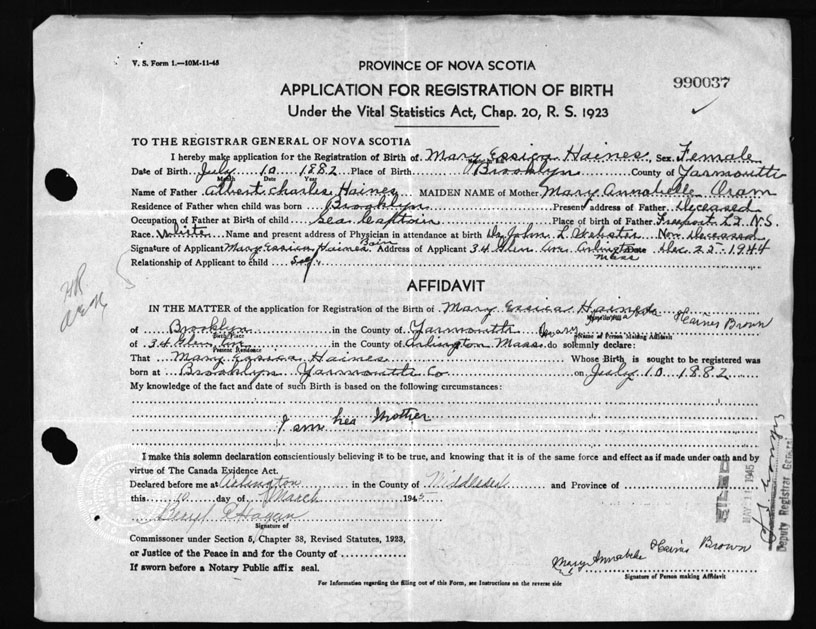 V. S. Form 1.—10M-11-45
PROVINCE OF NOVA SCOTIA
990037
APPLICATION FOR REGISTRATION OF BIRTH
Under the Vital Statistics Act, Chap. 20, R. S. 1923
TO THE REGISTRAR GENERAL OF NOVA SCOTIA
I hereby make application for the Registration of Birth of Mary Essica Haines, Sex Female
Date of Birth July 10 1882 Place of Birth Brooklyn County of Yarmouth
Month Date Year
Name of Father Albert Charles Haines MAIDEN NAME of Mother Mary Annabelle Oram
Residence of Father when child was born Brooklyn Present address of Father Deceased
Occupation of Father at Birth of child Sea Captain Place of birth of Father Freeport N.S.
Race White Name and present address of Physician in attendance at birth Dr John L Webster Deceased
Signature of Applicant Mary Essica Haines Address of Applicant 34 Glen Arlington Mass Dec. 22-1944
Relationship of Applicant to child Self
AFFIDAVIT
IN THE MATTER of the application for Registration of the Birth of Mary Essica Haines
Haines Brown
of Brooklyn in the County of Yarmouth Mary
Birth Place Name of Person Making Affidavit
of 34 Glen in the County of Arlington Mass do solemnly declare:
Present Residence
That Mary Essica Haines Whose Birth is sought to be registered was
born at Brooklyn Yarmouth Co on July 10 1882
My knowledge of the fact and date of such Birth is based on the following circumstances:
I am her Mother
I make this solemn declaration conscientiously believing it to be true, and knowing that it is of the same force and effect as if made under oath and by
virtue of The Canada Evidence Act.
Declared before me at Arlington in the County of Middlesex and Province of
this 10 day of March 1945
Signature of
Commissioner under Section 5, Chapter 38, Revised Statutes, 1923,
or Justice of the Peace in and for the County of
If sworn before a Notary Public affix seal.
Mary Annabelle Haines Brown
Signature of Person making Affidavit
For Information regarding the filling out of this Form, see Instructions on the reverse side
FILED
MAY 11 1945
Deputy Registrar General